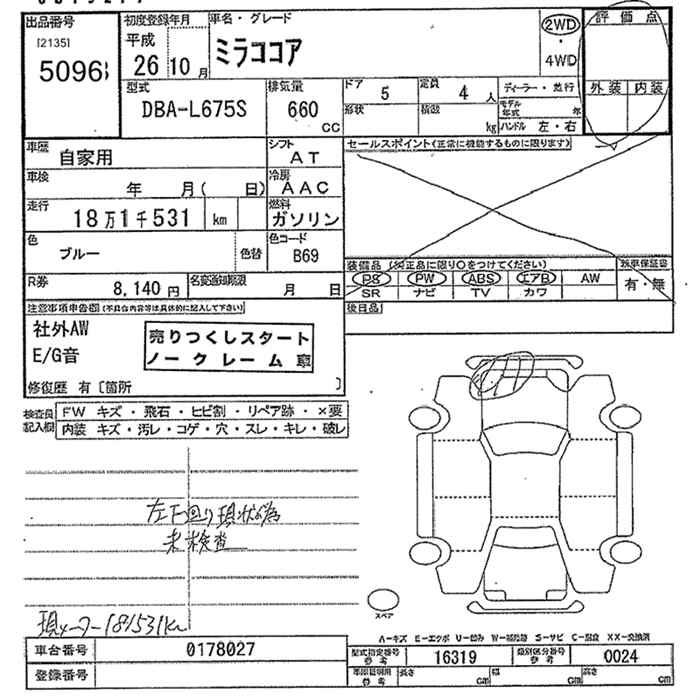 出品番号
[2135]
5096
初度登録年月
平成
26 10月
車名・グレード
ミラココア
2WD
・
4WD
評価点
外装 内装
型式
DBA-L675S
排気量
660
CC
ドア 5
定員 4 人
形状
積載 kg
ディーラー・並行
モデル年式 年
ハンドル 左・右
車歴
自家用
シフト
AT
車検
年 月( 日)
冷房
AAC
走行
18万1千531 km
燃料
ガソリン
色
ブルー
色替
色コード
B69
R券
8,140円
名変通知期限
月 日
セールスポイント(正常に機能するものに限ります)
装備品 (純正品に限り○をつけてください)
PS PW ABS エアB AW
SR ナビ TV カワ
新車保証書
有・無
後日品
注意事項申告欄(不具合内容等は具体的に記入して下さい)
社外AW
E/G音
売りつくしスタート
ノークレーム車
修復歴 有〔箇所 〕
検査員記入欄
FW キズ・飛石・ヒビ割・リペア跡・×要
内装 キズ・汚レ・コゲ・穴・スレ・キレ・破レ
左下回り現状為
未検査
現メーター181531km
スペア
A-キズ E-エクボ U-凹み W-補修跡 S-サビ C-腐食 XX-交換済
車台番号 0178027
登録番号
型式指定番号 参考 16319
類別区分番号 参考 0024
車庫証明用 参考
長さ cm
幅 cm
高さ cm